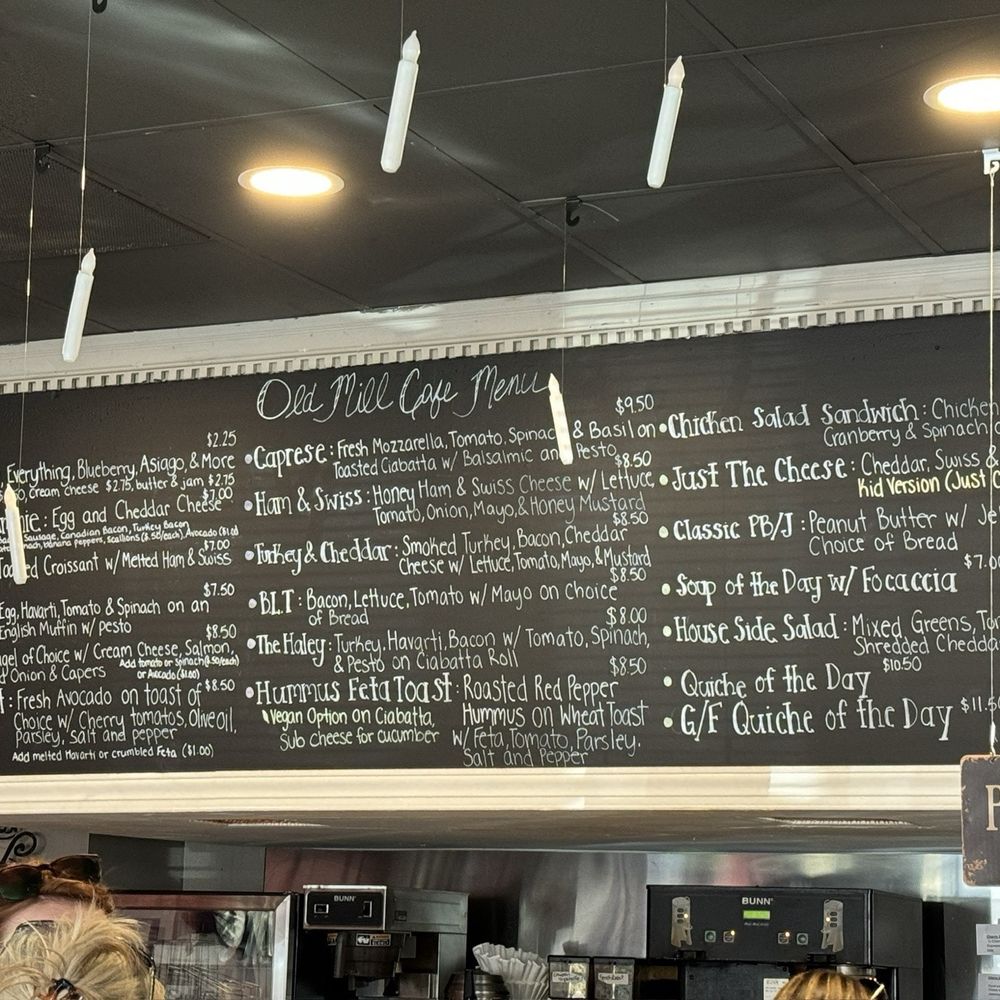 Old Mill Cafe Menu
$2.25
Everything, Blueberry, Asiago, & More
cream cheese $2.75, butter & jam $2.75
$7.00
: Egg and Cheddar Cheese
Sausage, Canadian Bacon, Turkey Bacon
banana peppers, scallions ($.50/each), Avocado ($1.00)
$7.00
Croissant w/ Melted Ham & Swiss
$7.50
Egg, Havarti, Tomato & Spinach on an
English Muffin w/ pesto
$8.50
of Choice w/ Cream Cheese, Salmon,
Onion & Capers
Add tomato or spinach ($.50/each)
or Avocado ($1.00)
$8.50
: Fresh Avocado on toast of
Choice w/ Cherry tomatos, Olive oil,
Parsley, salt and pepper
Add melted Havarti or crumbled Feta ($1.00)
$9.50
•Caprese: Fresh Mozzarella, Tomato, & Basil on
Toasted Ciabatta w/ Balsalmic Pesto
$8.50
•Ham & Swiss: Honey Ham & Swiss Cheese w/ Lettuce
Tomato, Onion, Mayo, & Honey Mustard
$8.50
•Turkey & Cheddar: Smoked Turkey, Bacon, Cheddar
Cheese w/ Lettuce, Tomato, Mayo, & Mustard
$8.50
•BLT: Bacon, Lettuce, Tomato w/ Mayo on Choice
of Bread
$8.00
•The Haley: Turkey, Havarti, Bacon w/ Tomato, Spinach,
& Pesto on Ciabatta Roll
$8.50
•Hummus Feta Toast: Roasted Red Pepper
Hummus on Wheat Toast
w/ Feta, Tomato, Parsley.
Salt and Pepper
Vegan Option on Ciabatta,
Sub cheese for cucumber
•Chicken Salad Sandwich: Chicken
Cranberry & Spinach
•Just The Cheese: Cheddar, Swiss &
Kid Version (Just
•Classic PB/J: Peanut Butter w/
Choice of Bread
$7.00
•Soup of the Day w/ Focaccia
•House Side Salad: Mixed Greens,
Shredded
$10.50
•Quiche of the Day
$11.50
•G/F Quiche of the Day
BUNN
BUNN